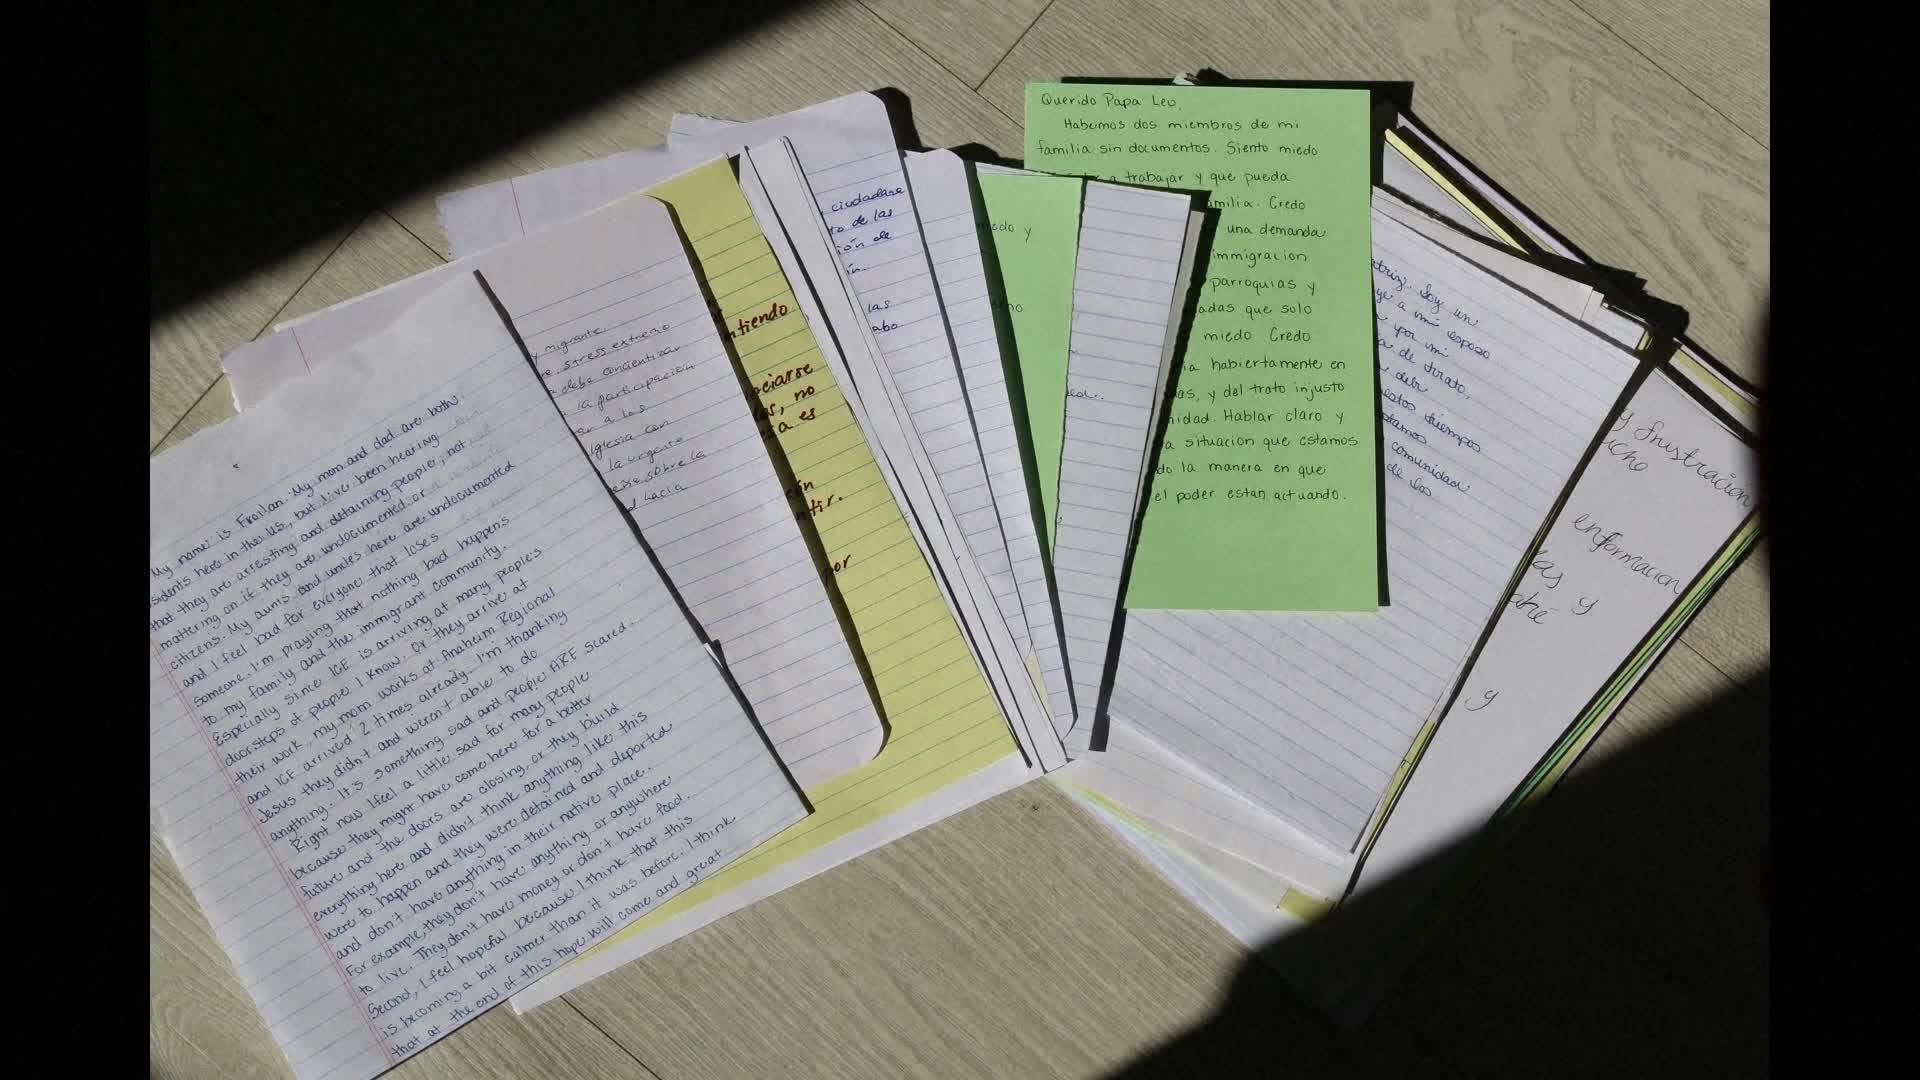 My name is Froilan. My mom and dad are both
sidents here in the US, but I've been hearing
that they are arresting and detaining people, not
mattering on if they are undocumented or a
citizens. My aunts and uncles here are undocumented
and I feel bad for everyone that loses
someone. I'm praying that nothing bad happens
to my family and the immigrant community.
Especially since ICE is arriving at many people's
doorsteps of people I know. Or they arrive at
their work, my mom works at Anaheim Regional
and ICE arrived 2 times already. I'm thanking
Jesus they didn't and weren't able to do
anything. It's something sad and people ARE scared.
Right now I feel a little sad for many people
because they might have come here for a better
future and the doors are closing, or they build
everything here and didn't think anything like this
were to happen and they were detained and deported
and don't have anything in their native place.
For example, they don't have anything or anywhere
to live. They don't have money or don't have food.
Second, I feel hopeful because I think that this
is becoming a bit calmer than it was before. I think
that at the end of this hope will come and great
y migrante
stress extremo
debe concientizar
la participación
a los
Iglesia con
la urgente
sobre la
hacia
ntiendo
ociarse
no
es
ntir.
por
ciudadano
to de las
ión de
ín.
las
abo
iedo y
Querido Papa Leo,
Habemos dos miembros de mi
familia sin documentos. Siento miedo
a trabajar y que pueda
amilia. Credo
una demanda
immigracion
parroquias y
adas que solo
miedo Credo
ia habiertamente en
as, y del trato injusto
nidad. Hablar claro y
a situacion que estamos
do la manera en que
el poder estan actuando.
atriz. Soy un
a mi esposo
por mi
de trato.
estos tiempos
stamos
comunidad
de los
y frustracion
icho
enformacion
las y
y